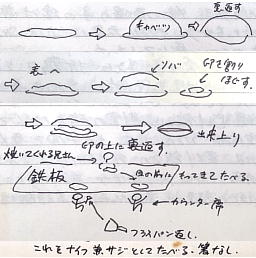 キャベツ
裏返す
表へ
ソバ
卵を割り
ほぐす。
卵の上に裏返す。
出来上り
焼いてくれる兄さん
鉄板
目の前に
もってきてたべる。
カウンター席
フライパン返し。
これをナイフ兼サジとしてたべる。箸なし。